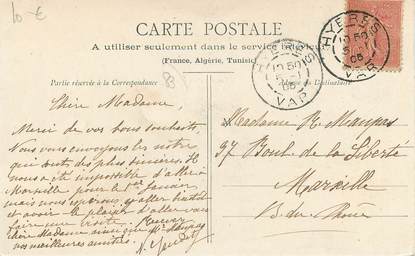 10 €
CARTE POSTALE
A utiliser seulement dans le service intérieur
(France, Algérie, Tunisie)
Partie réservée à la Correspondance
HYÈRES
VAR
HYÈRES
VAR
Chère Madame,
Merci de vos bons souhaits,
Nous vous envoyons les nôtres
qui sont des plus sincères. Il
nous a été impossible d'aller à
Marseille pour le 1er Janvier
mais nous espérons y aller bientôt
et avoir le plaisir d'aller vous
faire une visite. Recevez
chère Madame ainsi que Mr Maupas
nos meilleures amitiés.
Madame R. Maupas
37 Boul. de la Liberté
Marseille
B. du Rhône